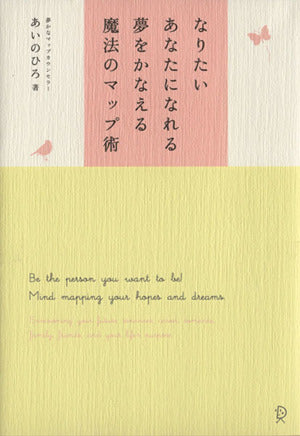 なりたい
あなたになれる
夢をかなえる
魔法のマップ術
夢かなマップカウンセラー
あいのひろ 著
Be the person you want to be!
Mind mapping your hopes and dreams.
family, friends and your life's purpose.